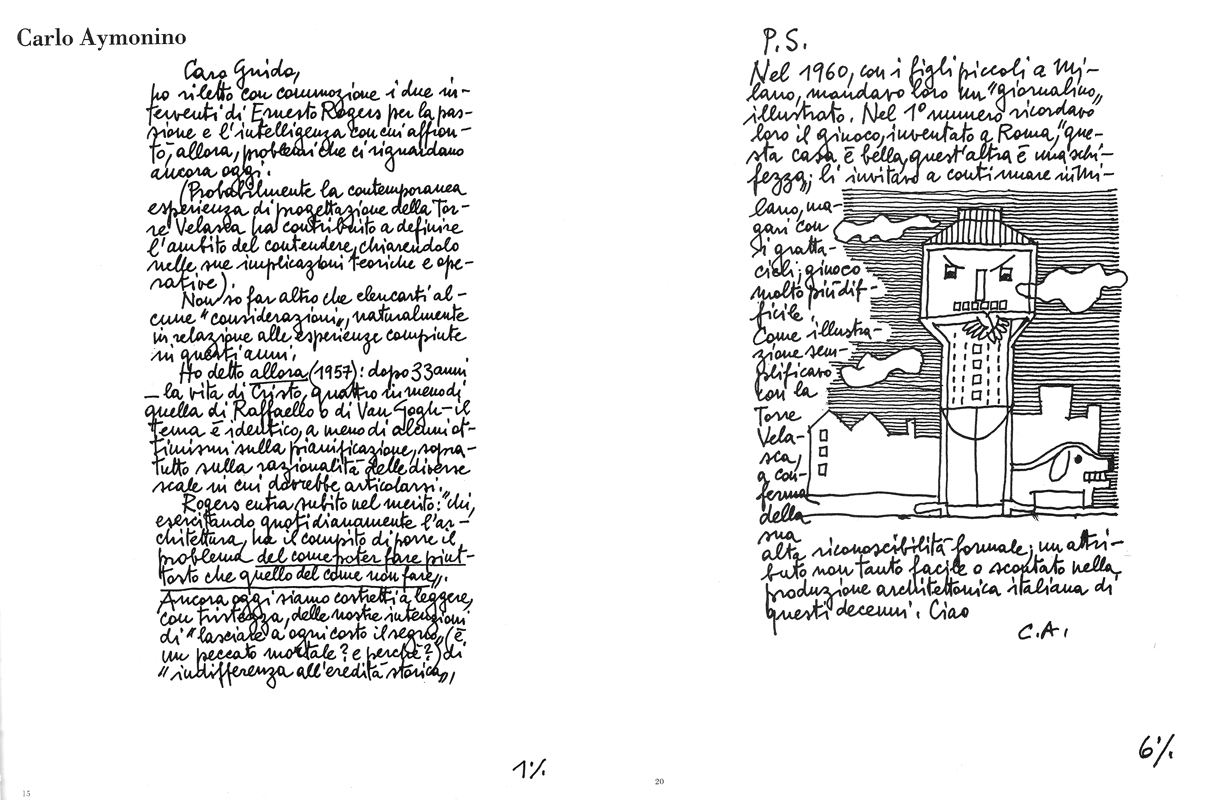 Carlo Aymonino
Caro Guido,
ho riletto con commozione i due in-
terventi di Ernesto Rogers per la pas-
sione e l'intelligenza con cui affron-
tò, allora, problemi che ci riguardano
ancora oggi.
(Probabilmente la contemporanea
esperienza di progettazione della Tor-
re Velasca ha contribuito a definire
l'ambito del contendere, chiarendolo
nelle sue implicazioni teoriche e ope-
rative).
Non so far altro che elencarti al-
cune "considerazioni", naturalmente
in relazione alle esperienze compiute
in questi anni.
Ho detto allora (1957): dopo 33 anni
– la vita di Cristo, quattro in meno di
quella di Raffaello o di Van Gogh – il
tema è identico, a meno di alcuni ot-
timismi sulla pianificazione, sopra-
tutto sulla razionalità delle diverse
scale in cui dovrebbe articolarsi.
Rogers entra subito nel merito: "chi,
esercitando quotidianamente l'ar-
chitettura, ha il compito di porre il
problema del come poter fare piut-
tosto che quello del come non fare".
Ancora oggi siamo costretti a leggere,
con tristezza, delle nostre intenzioni
di "lasciare a ogni costo il segno" (è
un peccato mortale? e perché?) di
"indifferenza all'eredità storica",
1%
15
P.S.
Nel 1960, con i figli piccoli a Mi-
lano, mandavo loro un "giornalino"
illustrato. Nel 1° numero ricordavo
loro il giuoco, inventato a Roma, "que-
sta casa è bella, quest'altra è una schi-
fezza"; li invitavo a continuare in Mi-
lano, ma-
gari con
i gratta-
cieli; giuoco
molto più dif-
ficile.
Come illustra-
zione sem-
plificavo
con la
Torre
Vela-
sca,
a con-
ferma
della
sua
alta riconoscibilità formale; un attri-
buto non tanto facile o scontato nella
produzione architettonica italiana di
questi decenni. Ciao
C.A.
6%
20